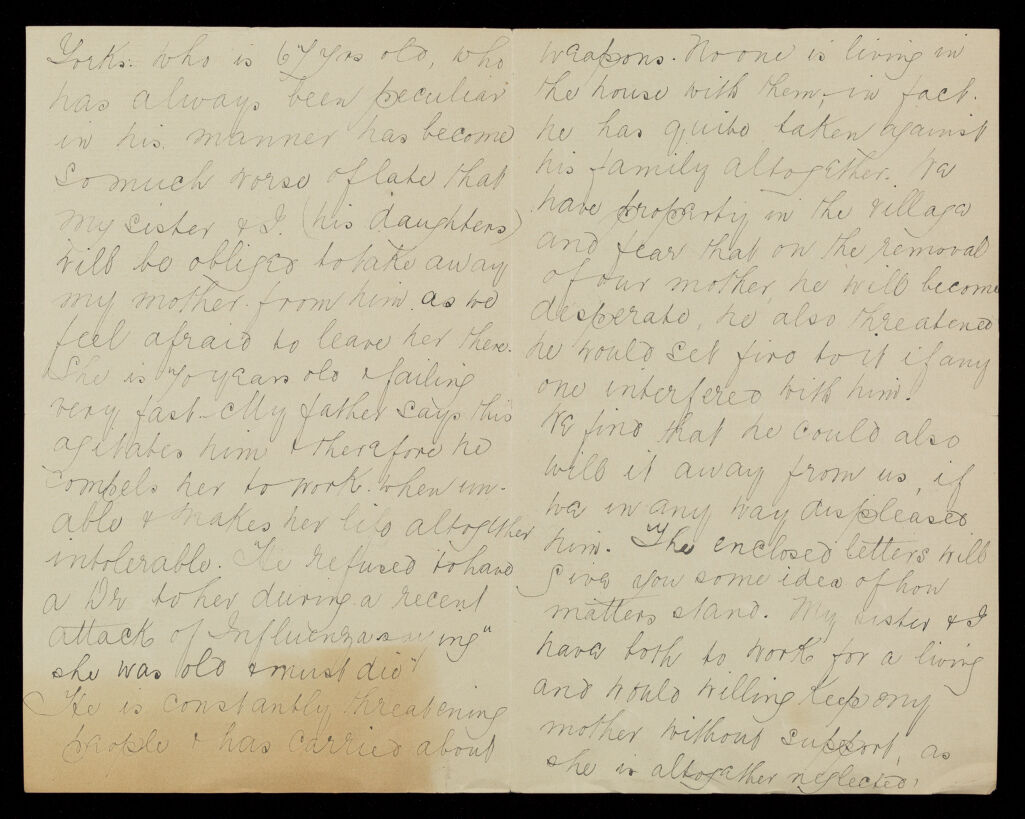 Yorks. who is 67 yrs old, who
has always been peculiar
in his manner has become
so much worse of late that
my sister & I. (his daughters)
will be obliged to take away
my mother from him as we
feel afraid to leave her there.
She is 70 years old & failing
very fast. My father says this
agitates him & therefore he
compels her to work when un-
able & makes her life altogether
intolerable. He refused to have
a Dr to her during a recent
attack of Influenza saying "
she was old & must die"
He is constantly threatening
people & has carried about
weapons. No one is living in
the house with them, in fact.
he has quite taken against
his family altogether. We
have property in the village
and fear that on the removal
of our mother, he will become
desperate, he also threatened
he would set fire to it if any
one interfered with him.
We find that he could also
will it away from us, if
we in any way displeased
him. The enclosed letters will
give you some idea of how
matters stand. My sister & I
have both to work for a living
and would willing keep my
mother without support, as
she is altogether neglected,